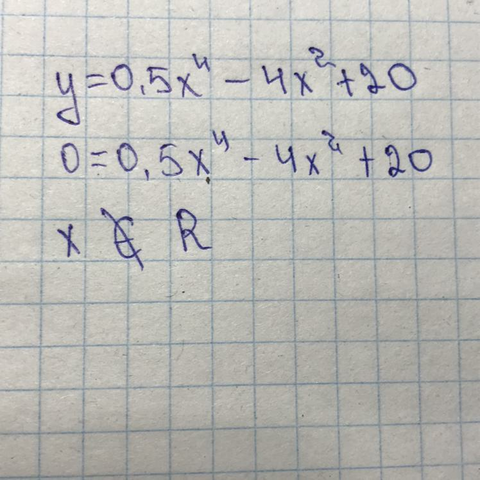 y=0,5x⁴-4x²+20
0=0,5x⁴-4x²+20
x ∉ R